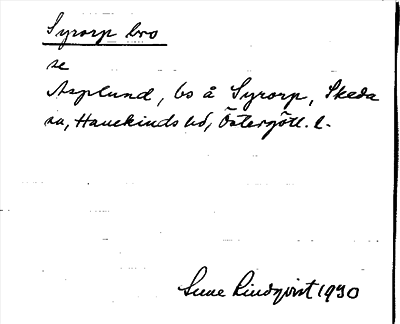 Syrorp bro
se
Asplund, bs å Syrorp, Skeda
sn, Hanekinds hd, Östergötl. l.
Sune Lindqvist 1930